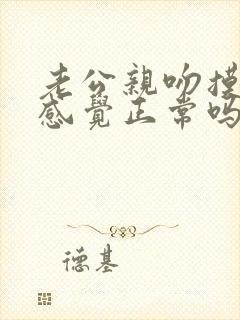 老公親吻摸
感覺正常吗
德基